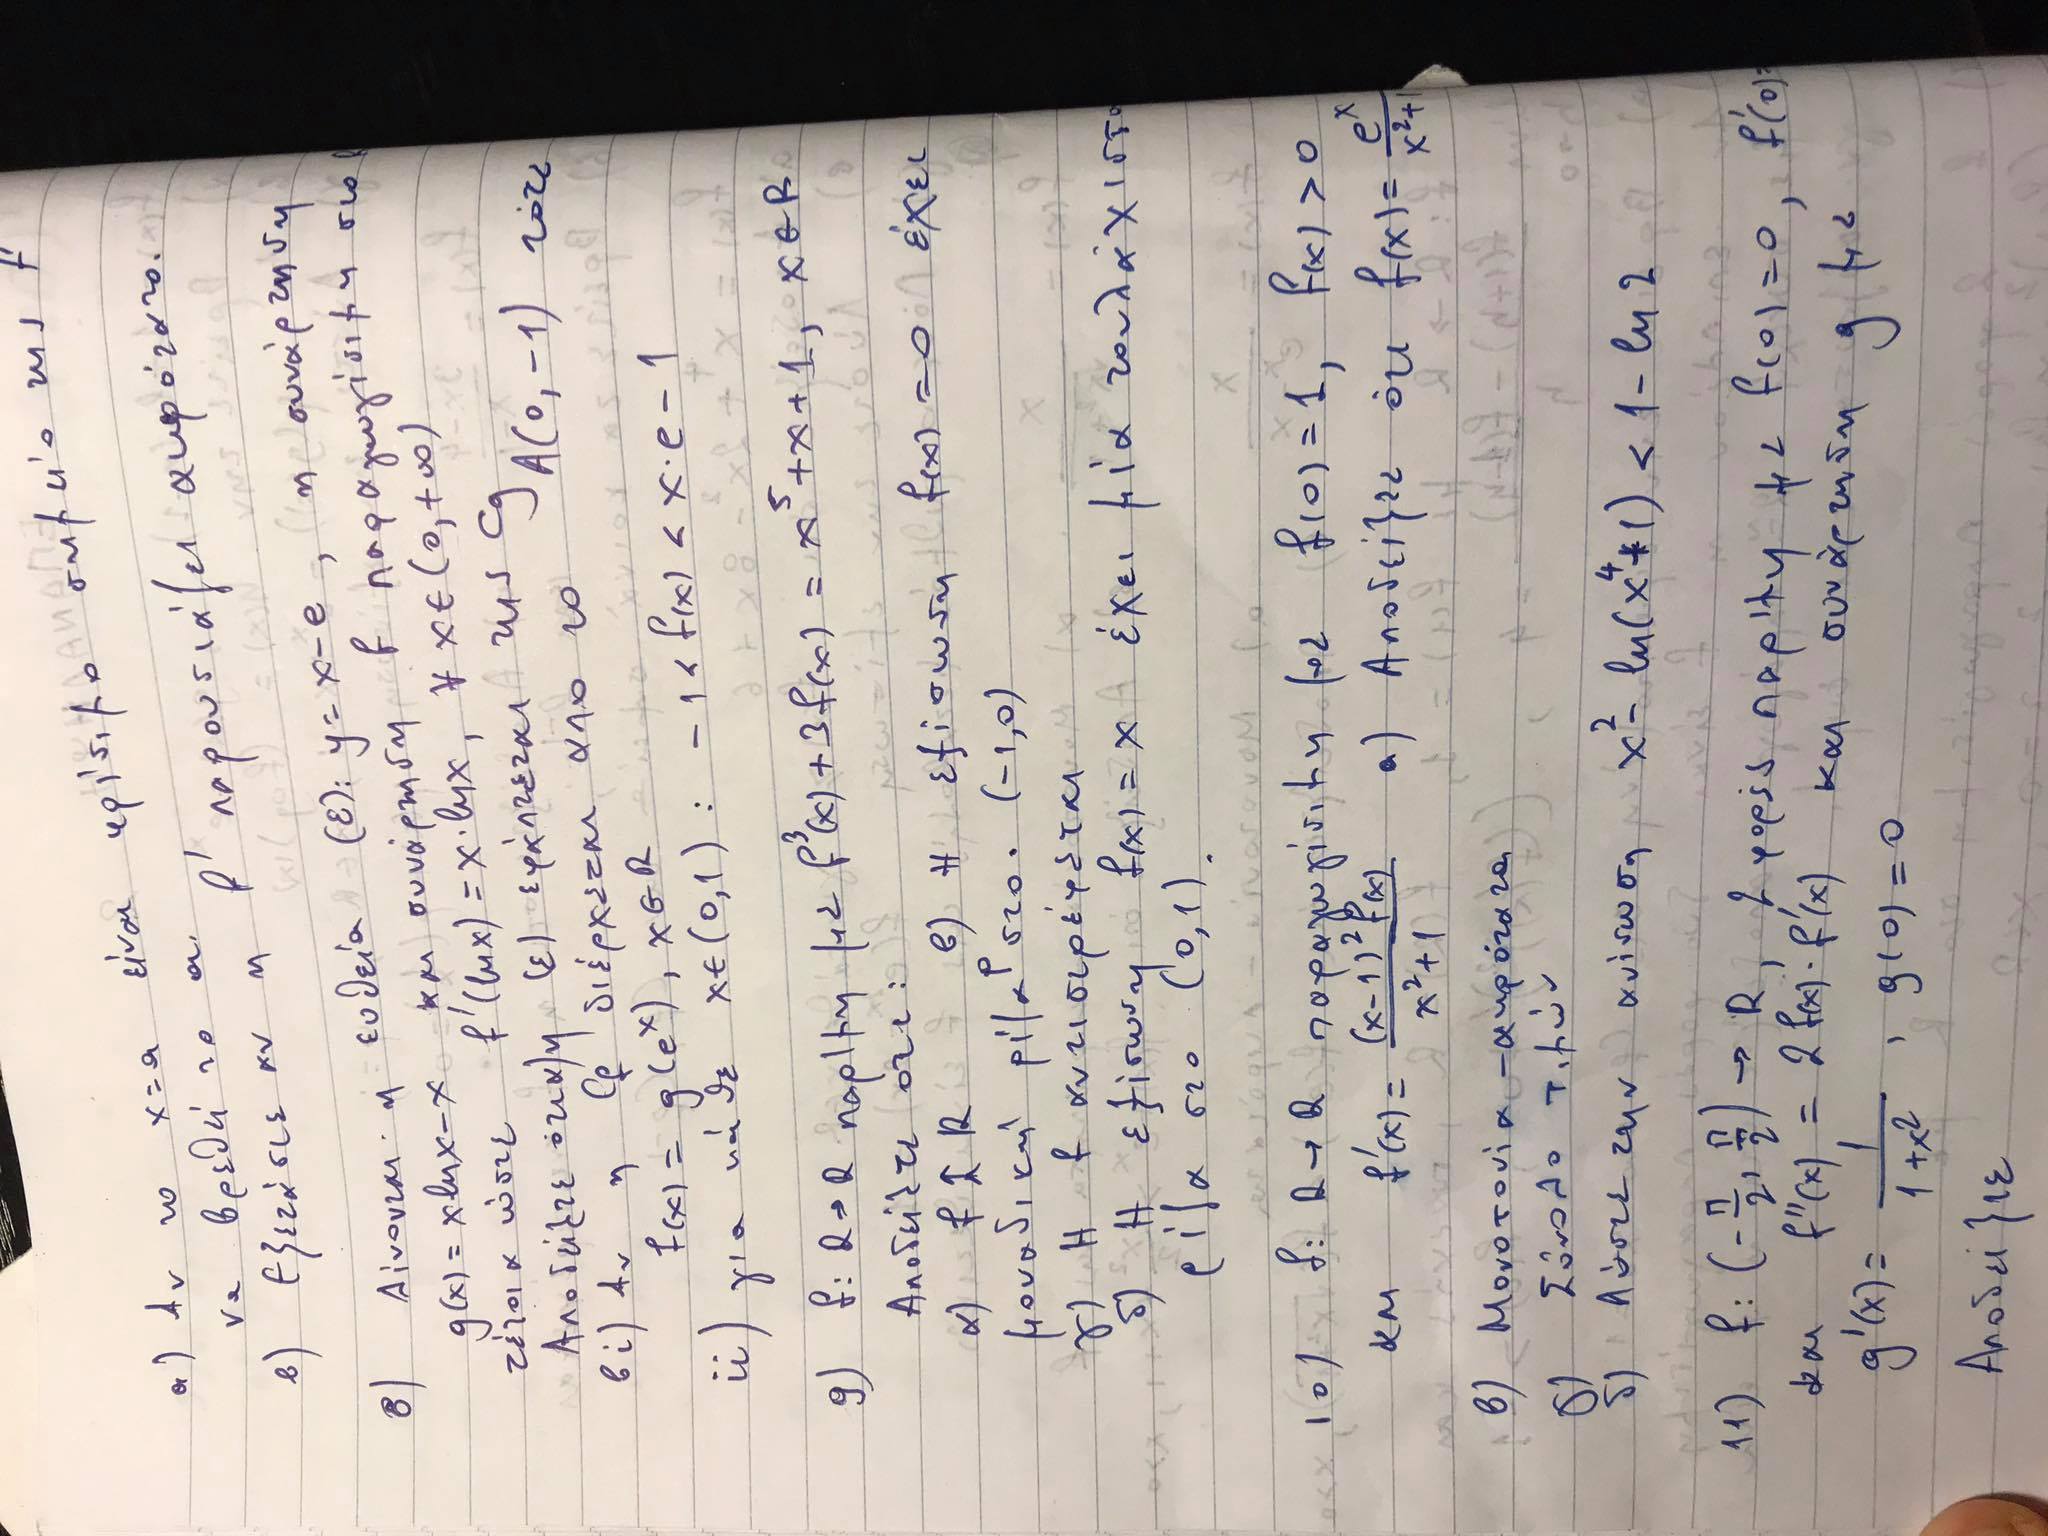 α) Αν το x=α είναι κρίσιμο σημείο της f'
να βρεθεί το α.
β) Εξετάστε αν η f' παρουσιάζει ακρότατο.
8) Δίνονται η ευθεία (ε): y=x-e, η συνάρτηση
g(x)=xlnx-x και συνάρτηση f παραγωγίσιμη στο R
τέτοια ώστε f'(lnx)=x·lnx, ∀ x∈(0,+∞)
Αποδείξτε ότι α) η (ε) εφάπτεται της Cg
βi) Αν η Cf διέρχεται από το A(0,-1) τότε
f(x)=g(eˣ), x∈R
ii) για κάθε x∈(0,1): -1<f(x)<x·e-1
9) f: R→R παρ/μη με f³(x)+3f(x)=x⁵+x+1, x∈R
Αποδείξτε ότι:
α) f↑R β) Η εξίσωση f(x)=0 έχει
μοναδική ρίζα ρ στο (-1,0)
γ) Η f αντιστρέφεται
δ) Η εξίσωση f(x)=x έχει μία τουλάχιστο
ρίζα στο (0,1).
10) f: R→R παραγωγίσιμη με f(0)=1, f(x)>0
και f'(x)=(x-1)²f(x)/x²+1 α) Αποδείξτε ότι f(x)=eˣ/x²+1
β) Μονοτονία-ακρότατα
γ) Σύνολο τιμών
δ) Λύστε την ανίσωση x²-ln(x⁴+1)<1-ln2
11) f: (-π/2, π/2)→R, 2 φορές παρ/μη με f(0)=0, f'(0)=
και f''(x)=2f(x)·f'(x) και συνάρτηση g με
g'(x)=1/1+x², g(0)=0
Αποδείξτε